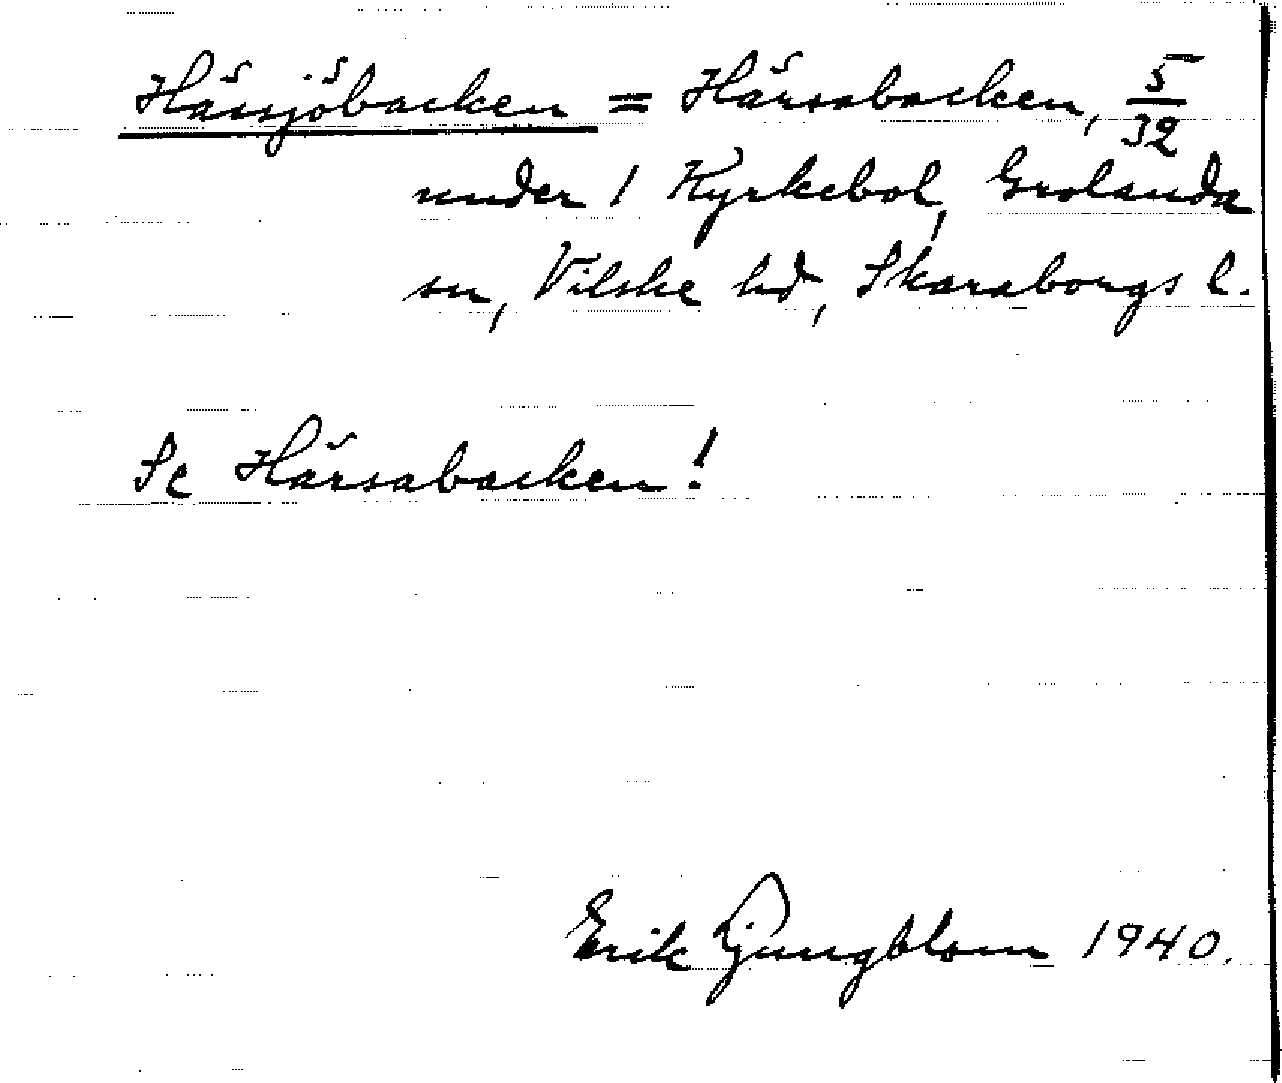 Hässjöbacken = Härsabacken, 5/32
under 1 Kyrkebol, Grolanda
sn, Vilske hd, Skaraborgs l.
Se Härsabacken!
Erik Ljungblom 1940.